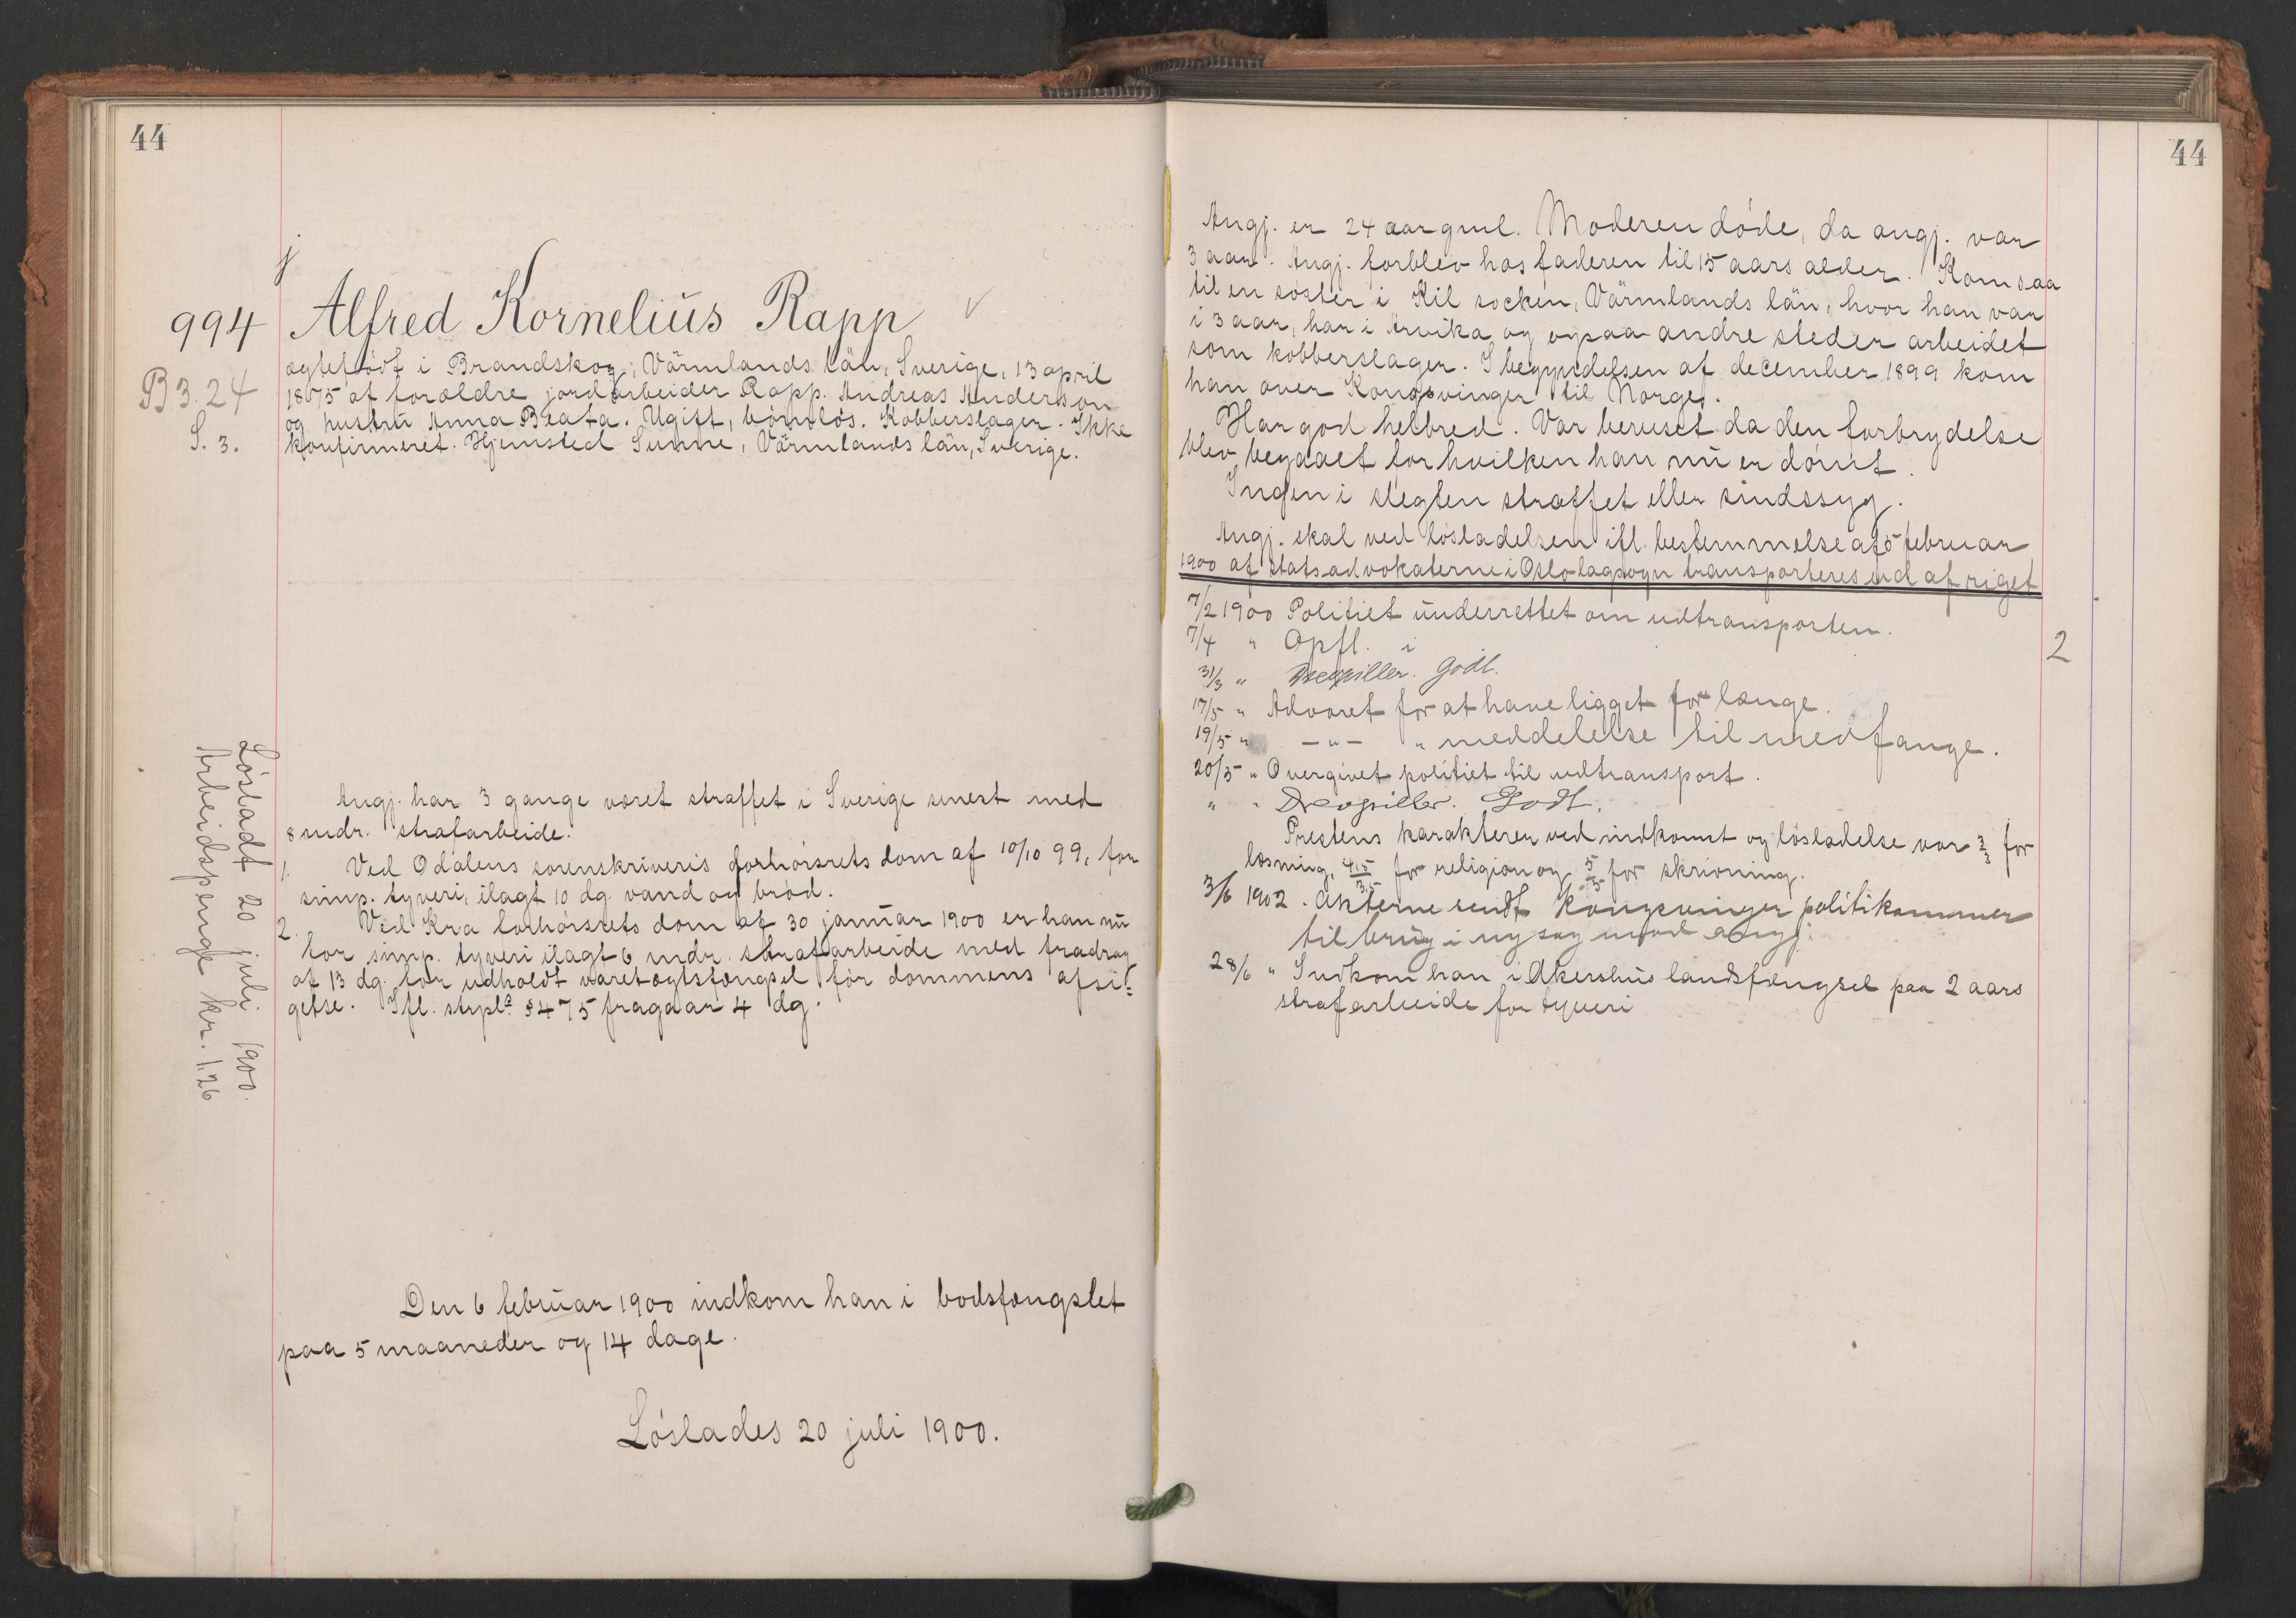 44
994 Alfred Kornelius Rapp
B 3. 24
S. 3.
ægtefødt i Brandskog, Värmlands län, Sverige, 13 april
1875 af forældre jordarbeider Rapp. Andreas Anderson
og hustru Anna Beata. Ugift, barnløs. Kobberslager. Ikke
konfirmeret. Hjemsted Sunne, Värmlands län, Sverige.
Løsladt 20 juli 1900.
Arbeidspenge kr. 1.26
Angj. har 3 gange været straffet i Sverige senest med
8 mdr. strafarbeide.
1. Ved Odalens sorenskriveris forhørsrets dom af 10/10 99, for
simp. tyveri, ilagt 10 dg. vand og brød.
2. Ved Kra forhørsrets dom af 30 januar 1900 er han nu
for simp. tyveri ilagt 6 mdr. strafarbeide med fradrag
af 13 dg. for udholdt varetægtsfængsel før dommens afsi-
gelse. Ifl. strpl. § 475 fragaar 4 dg.
Den 6 februar 1900 indkom han i bodsfængslet
paa 5 maaneder og 14 dage.
Løslades 20 juli 1900.
44
Angj. er 24 aar gml. Moderen døde, da angj. var
3 aar. Angj. forblev hos faderen til 15 aars alder. Kom saa
til en søster i Kil socken, Värmlands län, hvor han var
i 3 aar, har i Arvika og paa andre steder arbeidet
som kobberslager. I begyndelsen af december 1899 kom
han over Kongsvinger til Norge.
Har god helbred. Var beruset da den forbrydelse
blev begaaet for hvilken han nu er dømt.
Ingen i slegten straffet eller sindssyg.
Angj. skal ved løsladelsen ifl. bestemmelse af 5 februar
1900 af statsadvokaterne i Oslo lagsogn transporteres ud af riget
7/2 1900 Politiet underrettet om udtransporten.
7/4 " Opfl. i 2
31/3 " Godt.
17/5 " Advaret for at have ligget for længe.
19/5 " —"— " meddelelse til medfange.
20/5 " Overgivet politiet til udtransport.
" " Godt.
Prestens karakterer ved indkomst og løsladelse var 3/3 for
læsning, 4,5/3,5 for religion og 5/5 for skrivning.
3/6 1902. Akterne sendt Kongsvinger politikammer
til brug i ny sag mod angj.
28/6 " Indkom han i Akershus landsfængsel paa 2 aars
strafarbeide for tyveri